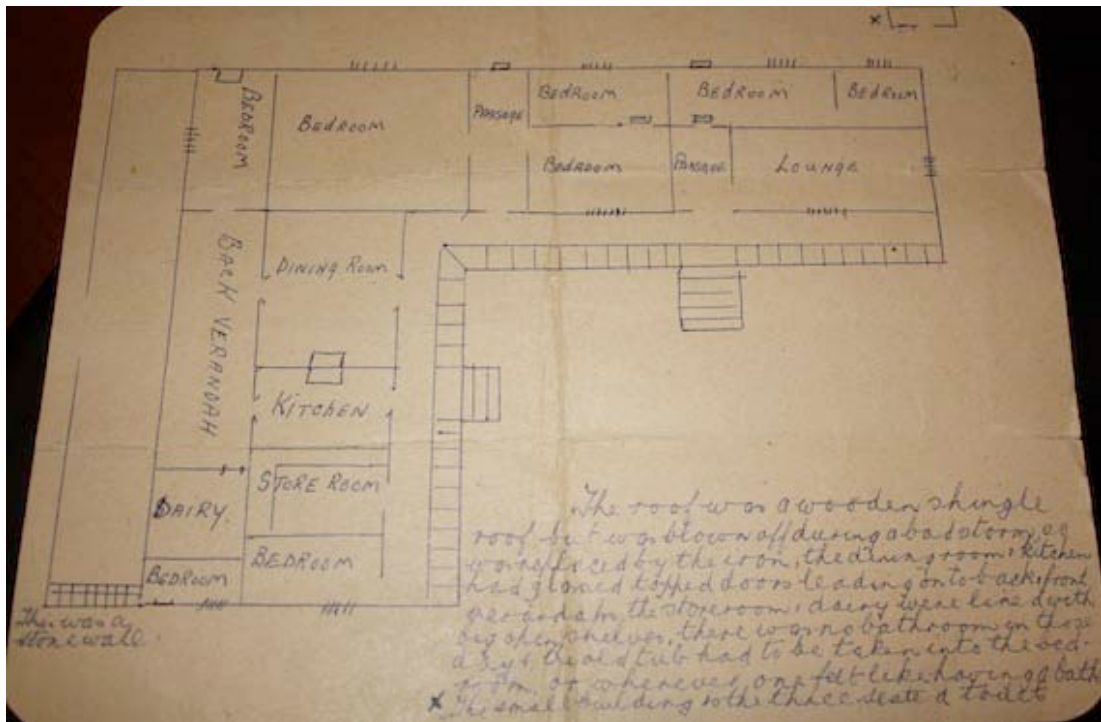 x
BEDROOM
BEDROOM
PASSAGE
BEDROOM
BEDROOM
BEDROOM
BEDROOM
PASSAGE
LOUNGE
BACK VERANDAH
DINING ROOM
KITCHEN
STORE ROOM
DAIRY.
BEDROOM
BEDROOM
This was a
stone wall.
The roof was a wooden shingle
roof but was blown off during a bad storm,
was replaced by the iron, the dining room & kitchen
had glazed topped doors leading onto back & front
verandahs, the storeroom & dairy were lined with
big open shelves, there was no bathroom in those
days the old tub had to be taken into the bed-
room or wherever one felt like having a bath
x This small building is the three seated toilet